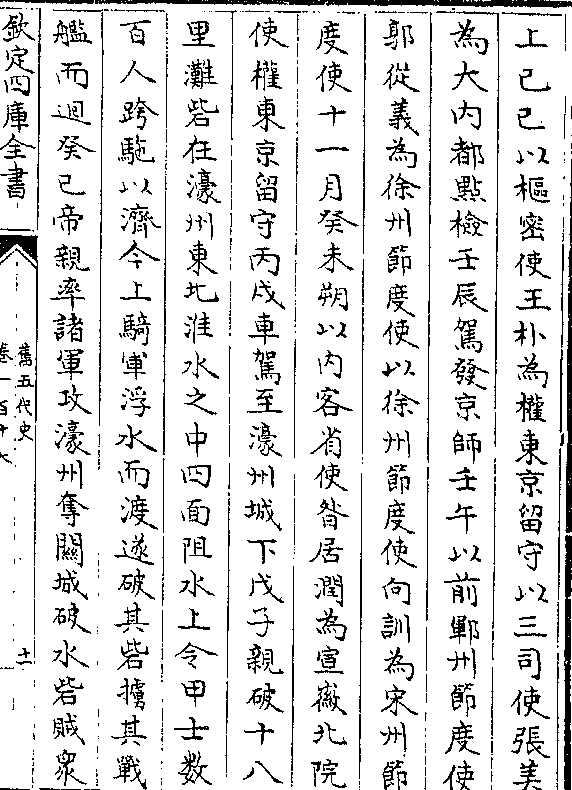 上己巳以樞密使王朴為權東京留守以三司使張美
為大内都㸃檢壬辰駕發京師壬午以前鄆州節度使
郭從義為徐州節度使以徐州節度使向訓為宋州節
度使十一月癸未朔以内客省使昝居潤為宣徽北院
使權東京留守丙戌車駕至濠州城下戊子親破十八
里灘砦在濠州東北淮水之中四面阻水上令甲士數
百人跨駞以濟今上騎軍浮水而渡遂破其砦擄其戰
艦而迴癸巳帝親率諸軍攻濠州奪闗城破水砦賊衆
欽定四庫全書
舊五代史
卷一百十七
十一